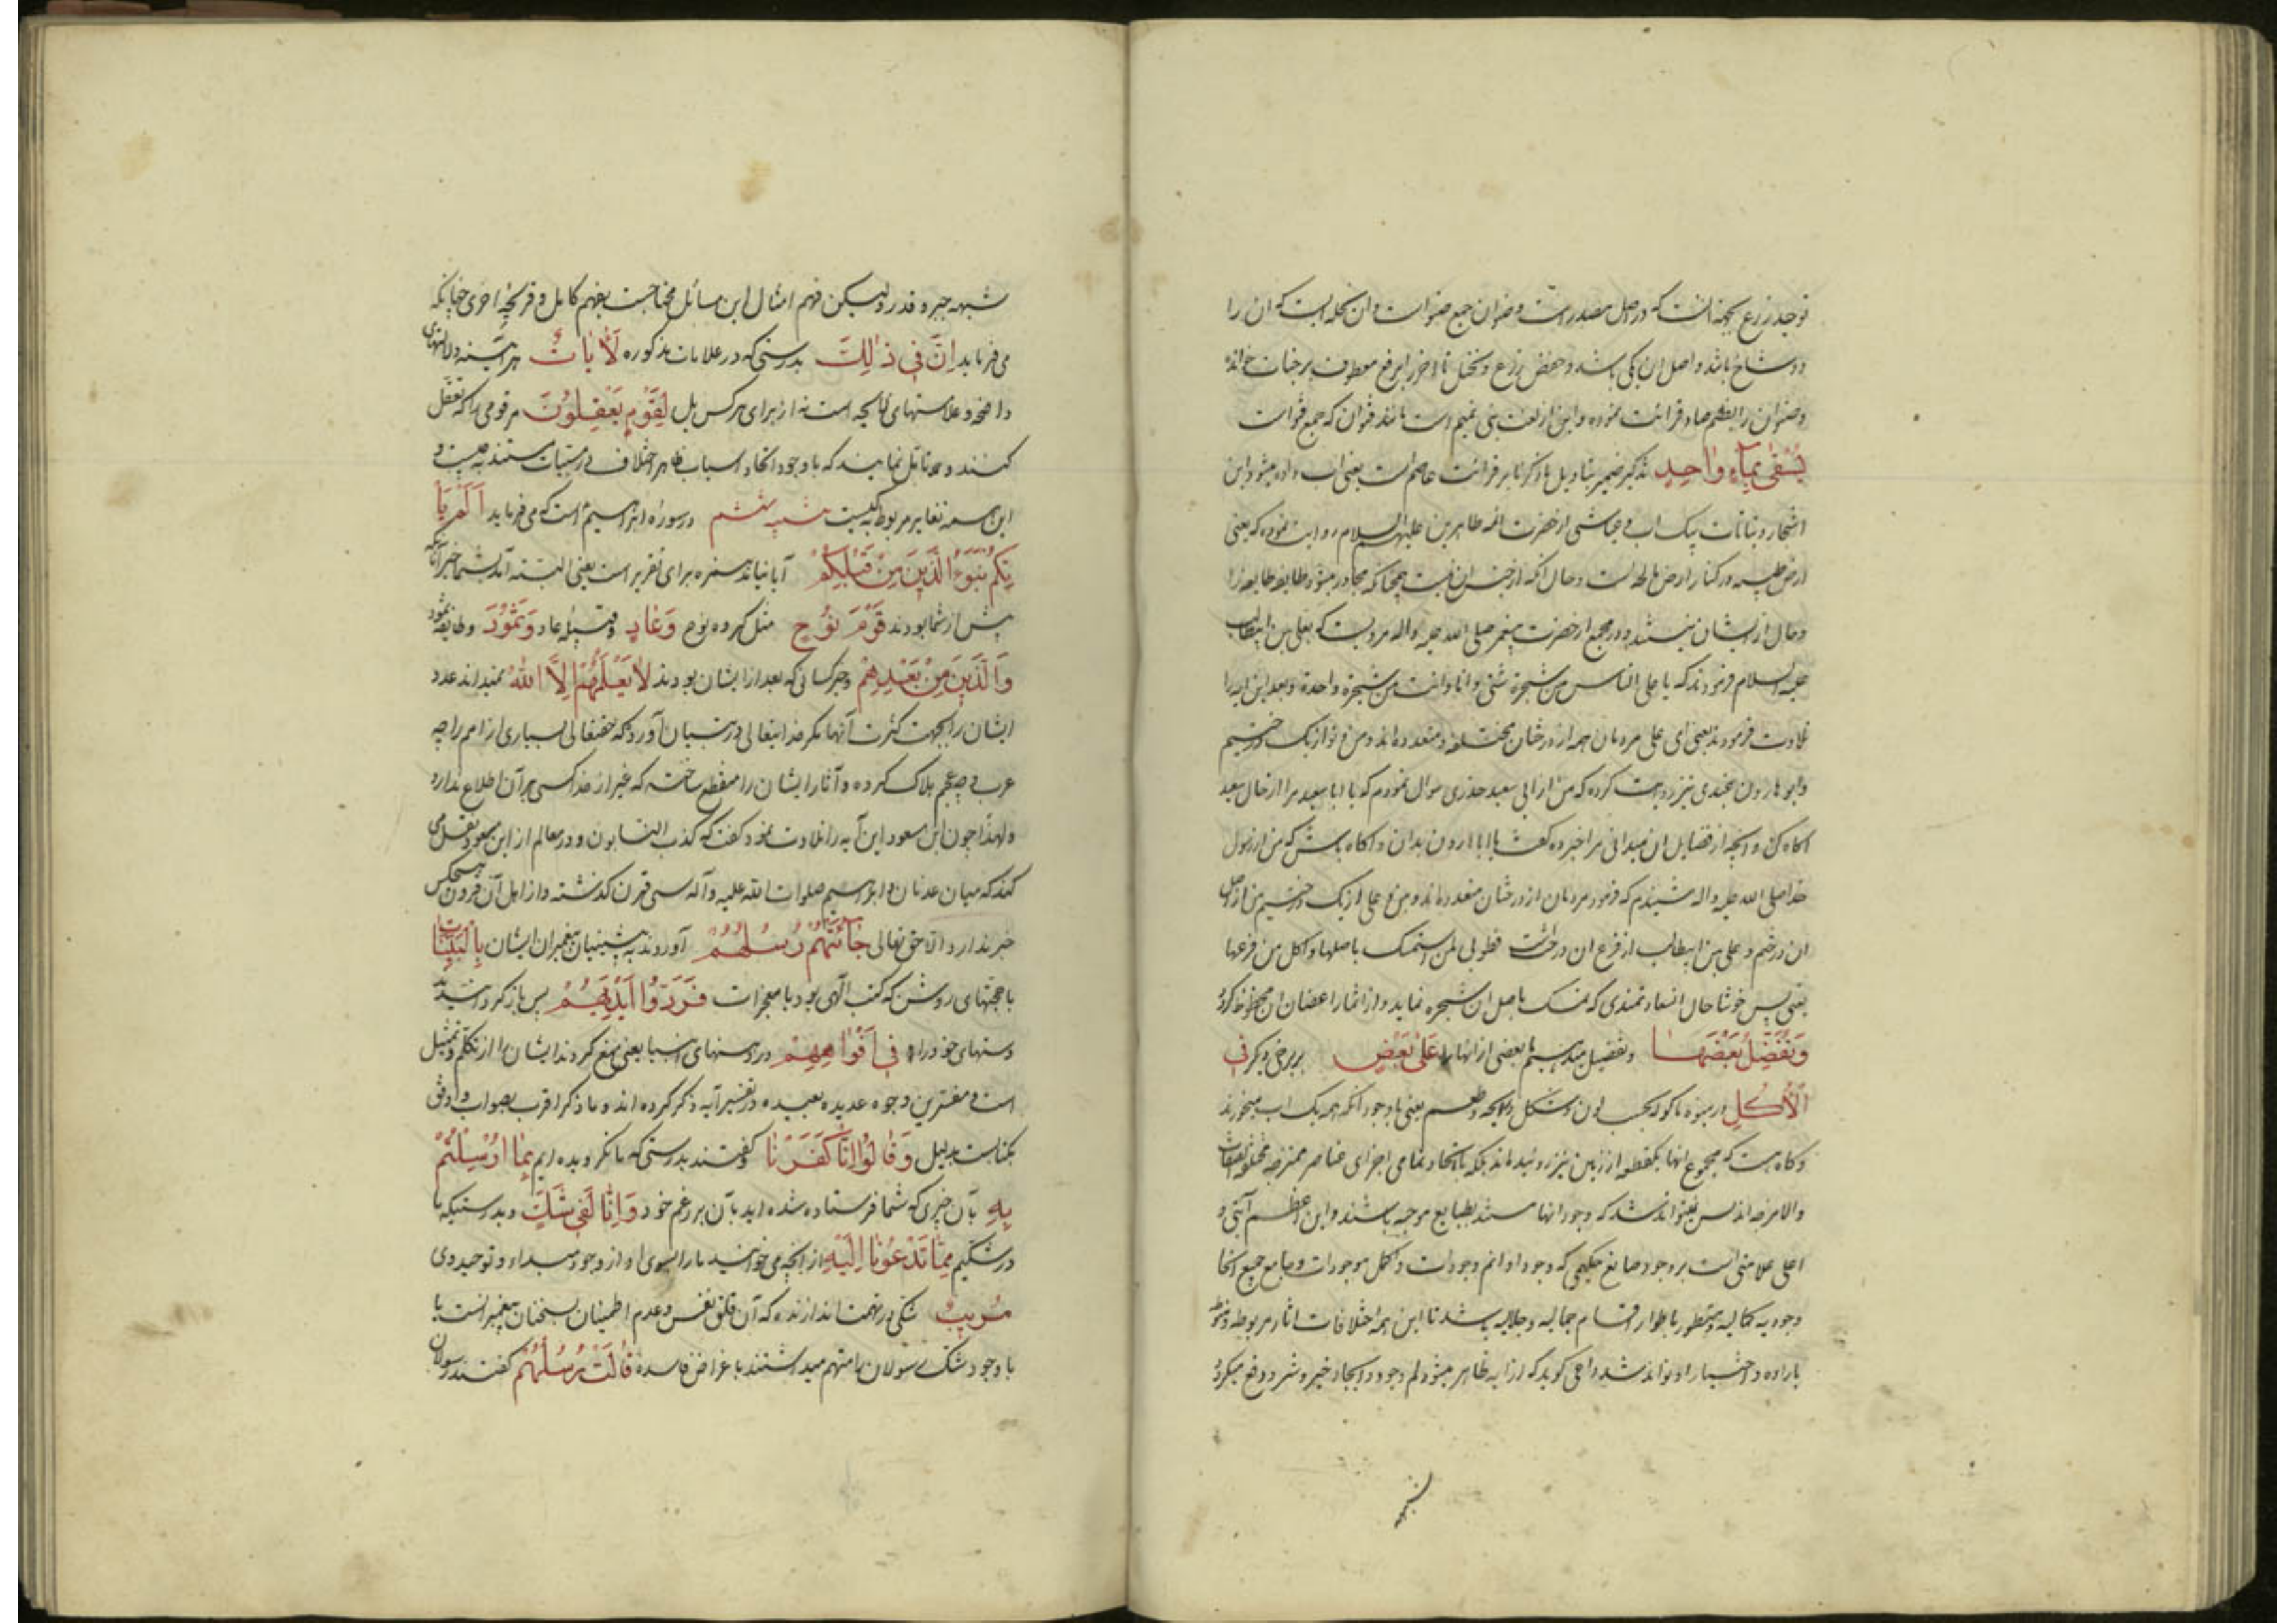 توحید زرع بجهة انست که در اصل مصدر است و صنوان جمع صنو است و ان نخله ایست که ان را
دو شاخ باشد و اصل ان یکی باشد و حفص زرع و نخیل تا اخر را برفع معطوف بر جنات خوانده
و صنوان را بضم صاد قرائت نموده و این از لغت بنی تمیم است مانند قنوان که جمع قنو است
يُسْقٰى بِمَآءٍ وٰاحِدٍ تذکیر ضمیر بتاویل ما ذکر بنا بر قرائت عاصم است یعنی اب داده میشود این
اشجار و نباتات بیک اب و عیاشی از حضرت ائمه طاهرین علیهم السلام روایت نموده که یعنی
ارض طیبه در کنار ارض مالحه است و حال انکه از جنس ان نیست همچنانکه مجاور میشود طایفه طایفه را
و حال از ایشان نیستند و در مجمع از حضرت پیغمبر صلی الله علیه واله مرویست که بعلی بن ابیطالب
علیه السلام فرمودند که یا علی الناس من شجرة شتی و انا وانت من شجرة واحدة و بعد این ایه را
تلاوت فرمودند یعنی ای علی مردمان همه از درختان مختلفه و متعدده اند و من و تو از یک درختیم
و ابو هارون عبدی نیز روایت کرده که من از ابی سعید خدری سوال نمودم که یا ابا سعید مرا از حال سعید
اکاه کن و انچه از فضایل ان میدانی مرا خبر ده گفت یا ابا هارون بدان و اکاه باش که من از رسول
خدا صلی الله علیه واله شنیدم که فرمود مردمان از درختان متعدده اند و من و علی از یک درختیم من از اصل
ان درختم و علی بن ابیطالب از فرع ان درخت فطوبی لمن استمسک باصلها و اکل من فرعها
یعنی پس خوشا حال سعادتمندی که تمسک باصل ان شجره نماید و از اثمار اغصان ان محظوظ گردد
وَنُفَضِّلُ بَعْضَهٰا و تفضیل میدهیم بعضی از انها را عَلٰى بَعْضٍ بر برخی دیگر فِي
الْاُكُلِ در میوه ماکوله بحسب لون و شکل و رایحه و طعم یعنی با وجود انکه همه یک اب میخورند
و گاه هست که مجموع انها یکقطعه از زمین نیز روئیده اند بلکه باتحاد تمامی اجزای عناصر ممتزجه مختلفة الصفات
والامزجه اند پس نمیتواند شد که وجود انها مستند بطبایع موجبه باشند و این اعظم آیتی و
اعلی علامتی است بر وجود صانع حکیمی که وجود او اتم وجودات و اکمل موجودات و جامع جمیع انحا
وجودیه کمالیه و متطور باطوار اقسام جمالیه و جلالیه باشد تا این همه اختلافات اثار مربوطه و منوطه
باراده و اختیار او تواند شد و اعی گوید که از ایه ظاهر میشود لم وجود و ایجاد خیر و شر و دفع میگردد
شبهه
شبهه جبر و قدر ولیکن فهم امثال این مسائل محتاجست بفهم کامل و قریحه اخری چنانکه
می فرماید اِنَّ فِي ذٰلِكَ بدرستی که در علامات مذکوره لَاٰيٰاتٍ هر آینه دلالتهای
واضحه و علامتهای لایحه است نه از برای هر کس بل لِقَوْمٍ يَعْقِلُونَ مر قومی را که تعقل
کنند و تامل نمایند که با وجود اتحاد اسباب ظاهر اختلاف در مسببات مستند بچیست و
این همه تغایر مربوط بکیست شبهه ششم در سوره ابراهیم است که می فرماید اَلَمْ يَأْ
تِكُمْ نَبَؤُا الَّذِينَ مِنْ قَبْلِكُمْ آیا نیامد همزه برای تقریر است یعنی البته آمد بشما خبر آنانکه
پیش از شما بودند قَوْمِ نُوْحٍ مثل گروه نوح وَعٰادٍ و قبیله عاد وَثَمُوْدَ و طایفه ثمود
وَالَّذِينَ مِنْ بَعْدِهِمْ و خبر کسانی که بعد از ایشان بودند لٰا يَعْلَمُهُمْ اِلَّا اللّٰهُ نمیداند عدد
ایشان را بجهت کثرت آنها مگر خدایتعالی در تبیان آورده که حقتعالی بسیاری از امم را چه
عرب و چه عجم هلاک کرده و آثار ایشان را منقطع ساخته که غیر از خدا کسی بر آن اطلاع ندارد
و لهذا چون ابن مسعود این آیه را تلاوت نمود گفت که کذب النسابون و در معالم از ابن مسعود نقل می
کند که میان عدنان و ابراهیم صلوات الله علیه و آله سی قرن گذشته و از اهل آن قرون هیچکس
خبر ندارد الا حق تعالی جٰائَتْهُمْ رُسُلُهُمْ آوردند به پیشینیان پیغمبران ایشان بِالْبَيِّنٰاتِ
با حجتهای روشن که کتب الهی بود با معجزات فَرَدُّوا اَيْدِيَهُمْ پس باز گردانیدند
دستهای خود را فِي اَفْوٰاهِهِمْ در دهنهای انبیا یعنی منع کردند ایشان را از تکلم و تمثیل
است و مفسرین وجوه عدیده بعیده در تفسیر آیه ذکر کرده اند و ما ذکر اقرب بصواب و اوفق
بکتابست بدلیل وَقٰالُوْا اِنّٰا كَفَرْنٰا و گفتند بدرستی که ما نگرویده ایم بِمٰا اُرْسِلْتُمْ
بِهِ بآن چیزی که شما فرستاده شده اید بآن بر زعم خود وَاِنّٰا لَفِي شَكٍّ و بدرستیکه ما
در شکیم مِمّٰا تَدْعُوْنٰا اِلَيْهِ از انچه می خوانید ما را بسوی او از وجود مبداء و توحید وی
مُرِيبٍ شکی در تهمت اندازنده که آن قلق نفس و عدم اطمینان بسخنان پیغمبرانست یا
با وجود شک رسولان را متهم میداشتند باغراض فاسده قٰالَتْ رُسُلُهُمْ گفتند رسولان